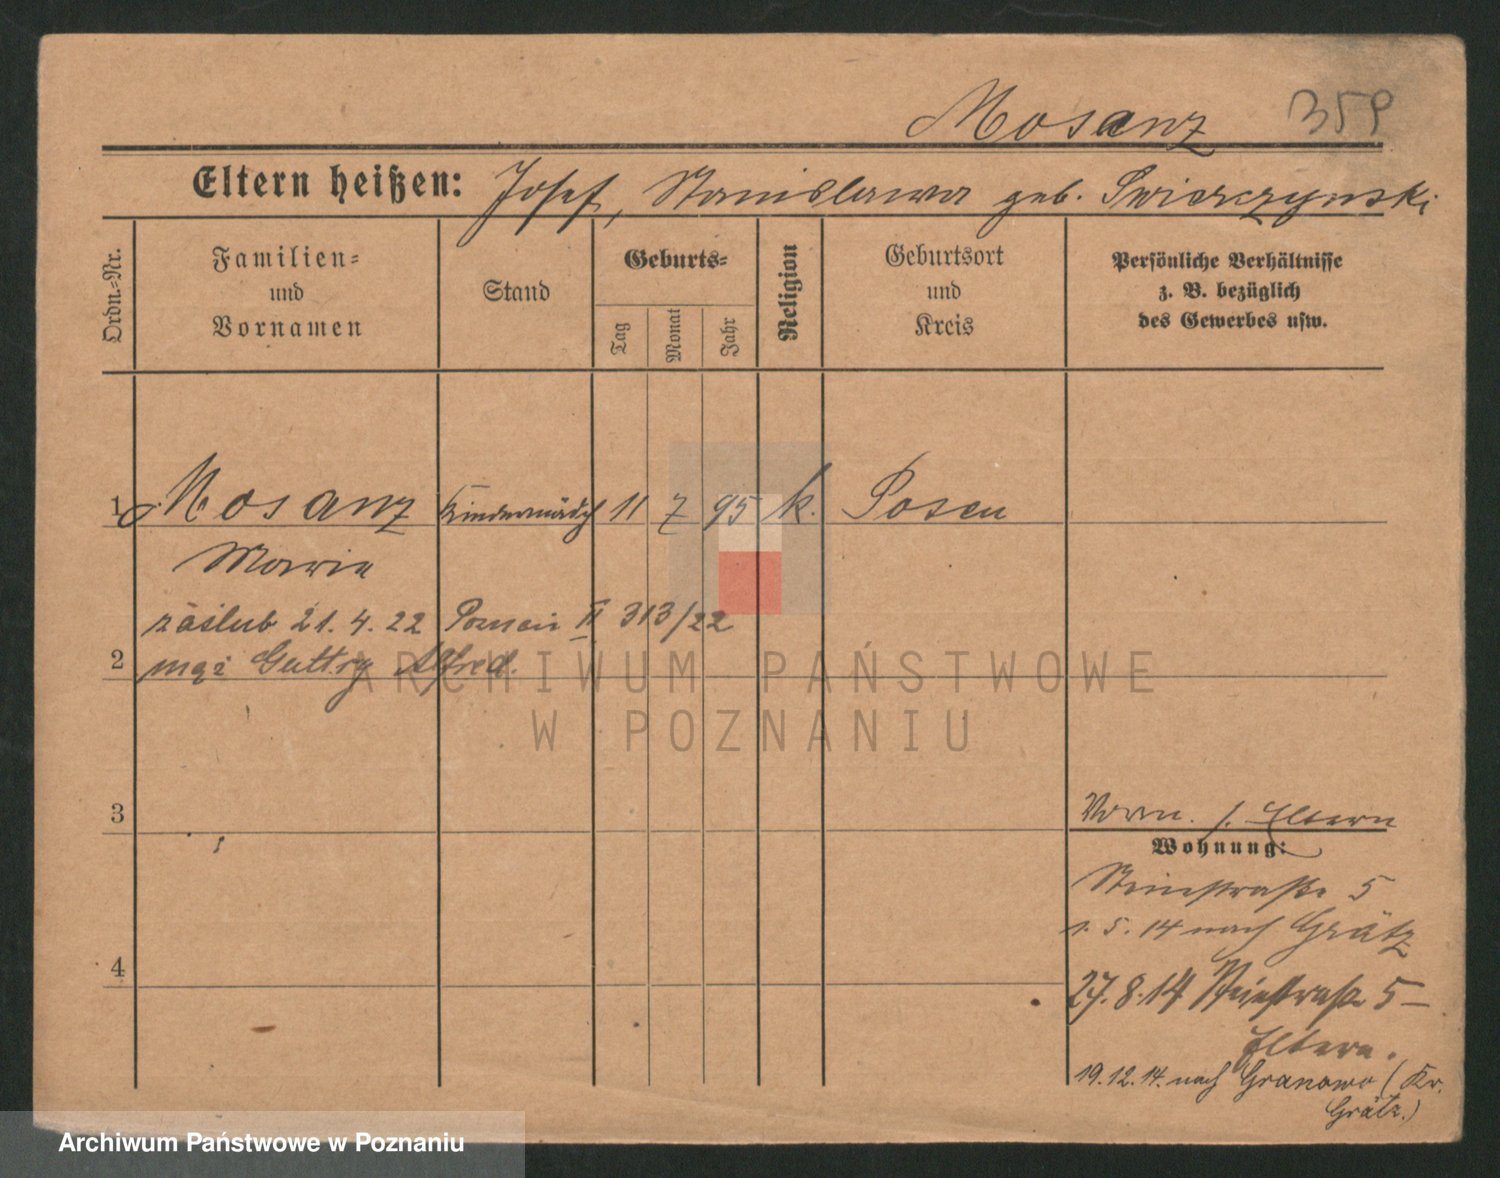 Mosanz 359
Eltern heißen: Josef, Stanislawa geb. Swierczynski
Ordn.-Nr.
Familien- und Vornamen
Stand
Geburts-
Tag
Monat
Jahr
Religion
Geburtsort und Kreis
Persönliche Verhältnisse z. B. bezüglich des Gewerbes usw.
1 Mosanz Kindermädch 11 7 95 k. Posen
Maria
záślub 21.4.22 Poznań II 313/22
2 mąż Guttry Alfred.
3
Vorm. s. Eltern
Wohnung:
Steinstraße 5
1.5.14 nach Grätz
4
27.8.14 Steinstraße 5 –
Eltern.
19.12.14. nach Granowo (Kr.
Grätz.)
ARCHIWUM PAŃSTWOWE
W POZNANIU
Archiwum Państwowe w Poznaniu